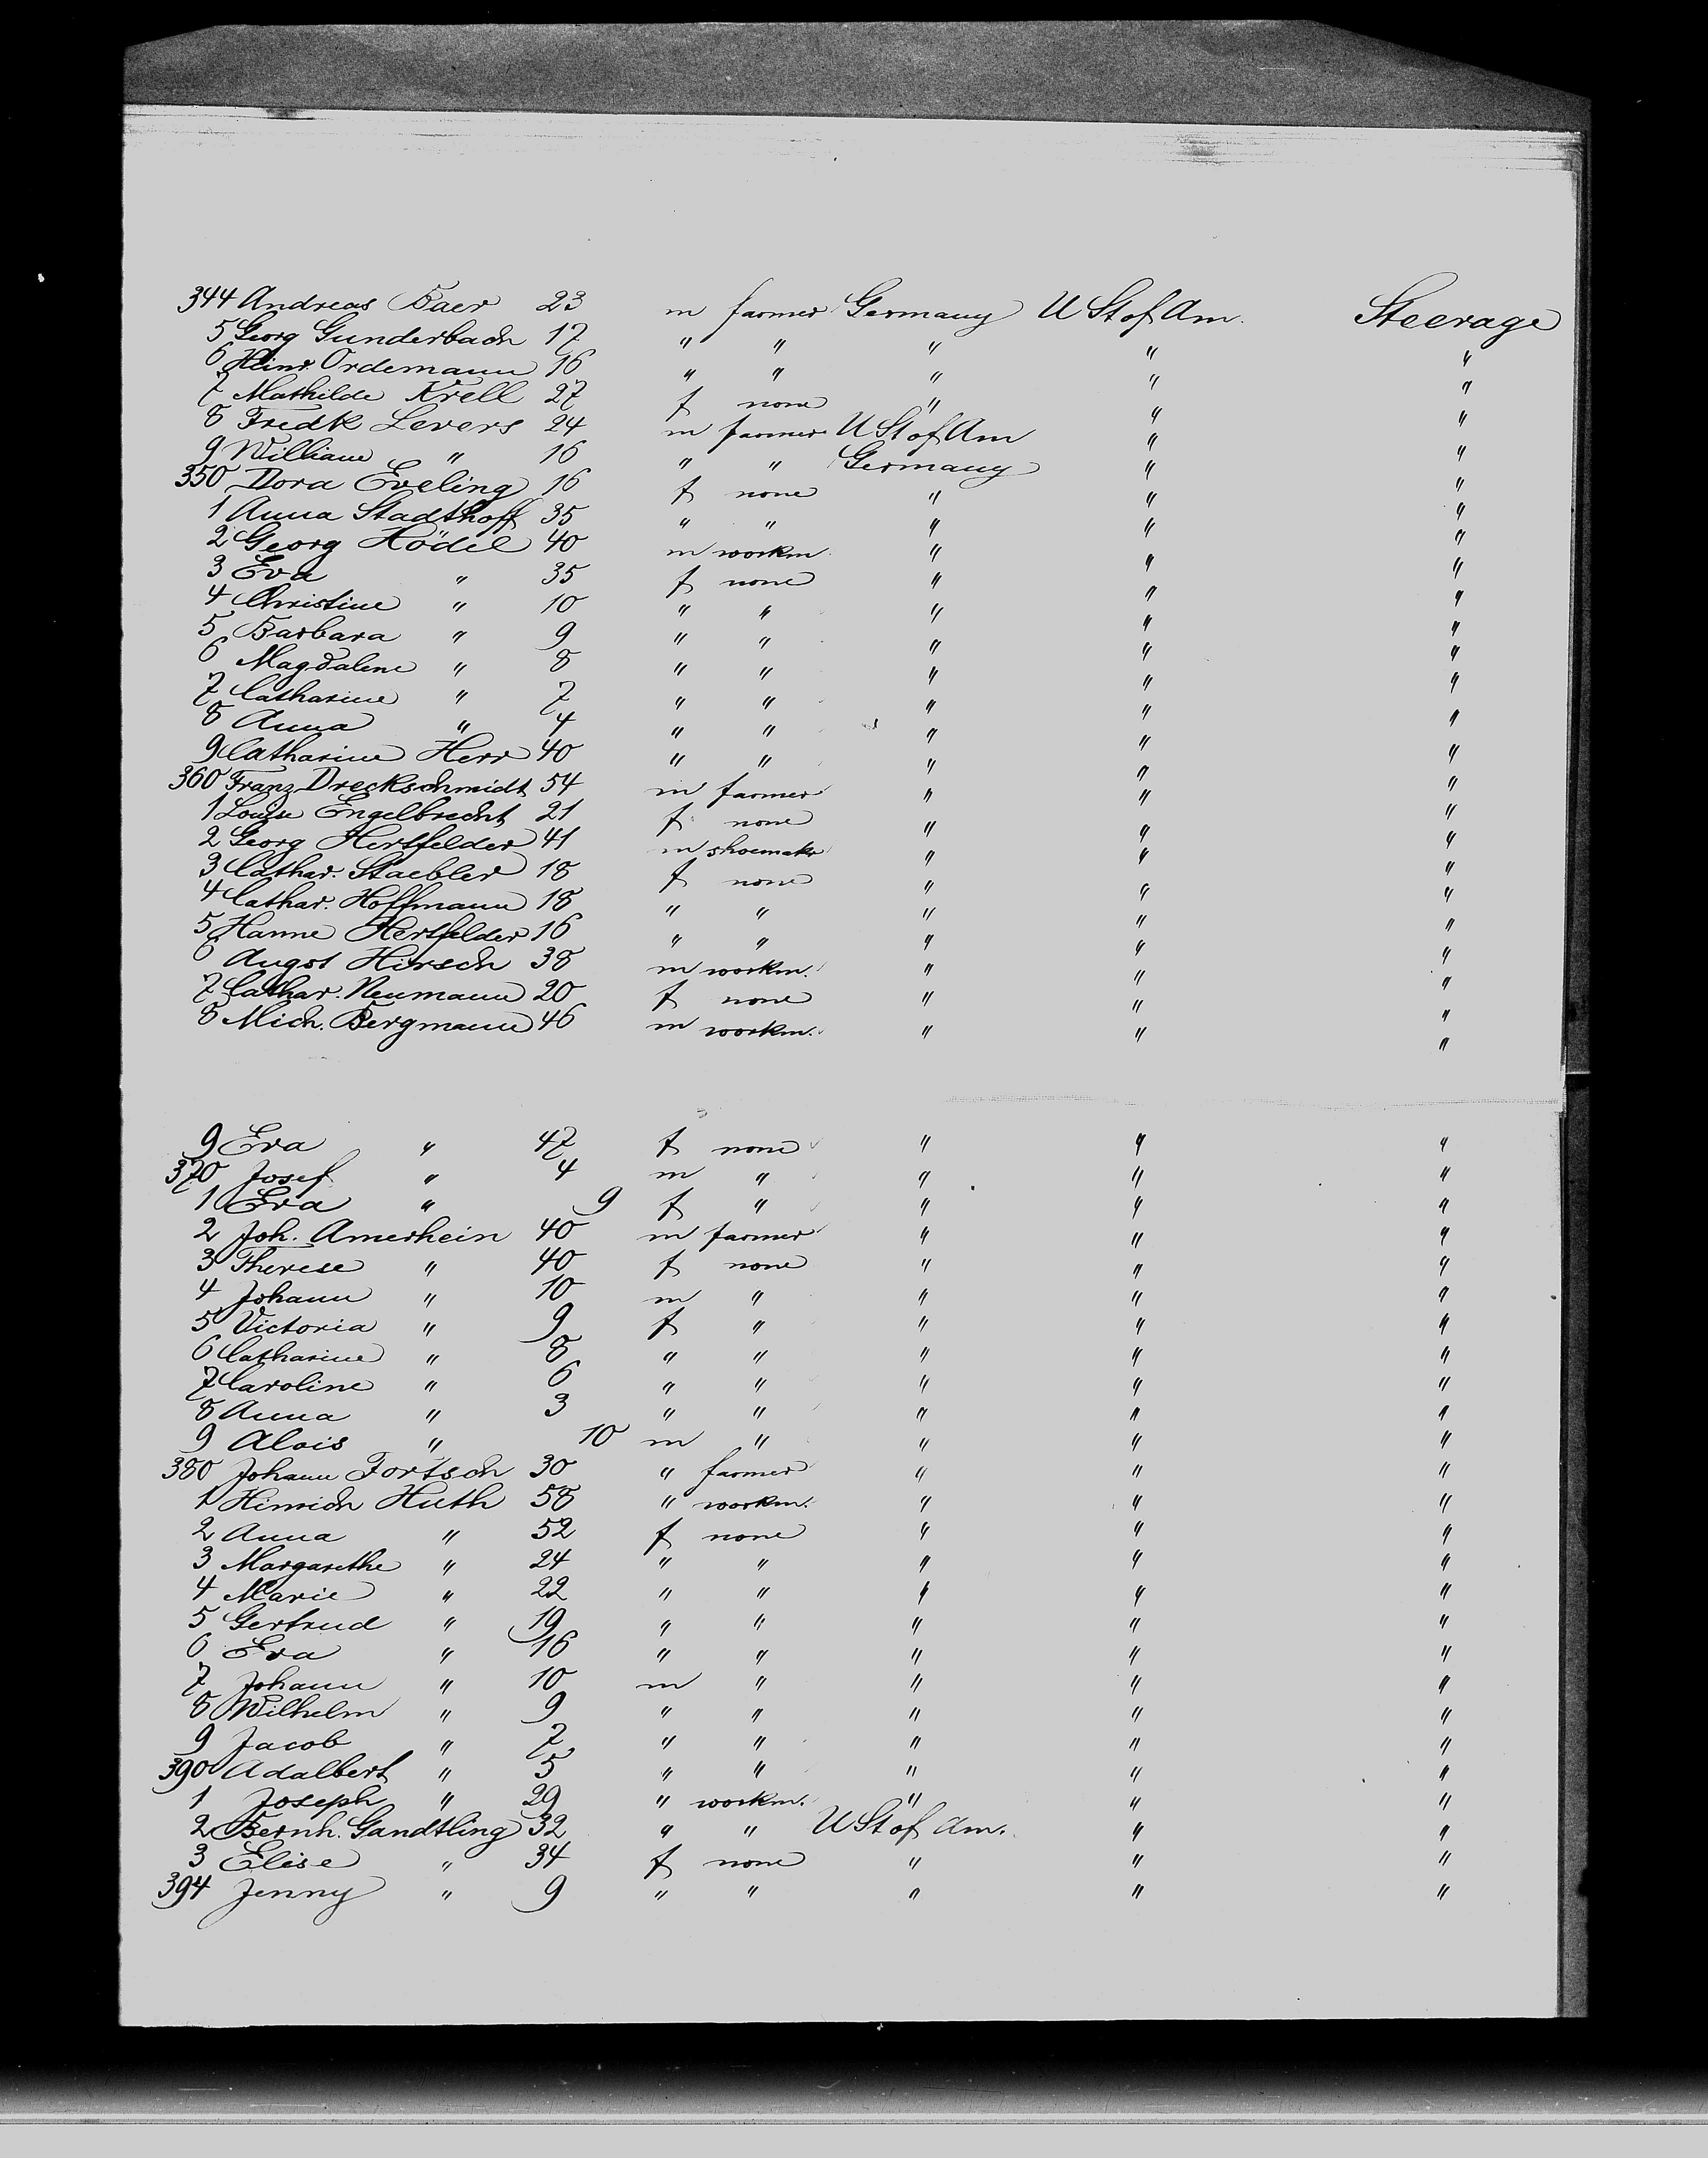 344 Andreas Baer 23 m farmer Germany U St of Am. Steerage
5 Georg Gunderbach 17 " " " " "
6 Heinr. Ordemann 16 " " " " "
7 Mathilde Krell 27 f none " " "
8 Fredk Levers 24 m farmer U St of Am " "
9 William " 16 " " Germany " "
350 Dora Eveling 16 f none " " "
1 Anna Stadthoff 35 " " " " "
2 Georg Hödel 40 m workm. " " "
3 Eva " 35 f none " " "
4 Christine " 10 " " " " "
5 Barbara " 9 " " " " "
6 Magdalene " 8 " " " " "
7 Catharine " 7 " " " " "
8 Anna " 4 " " " " "
9 Catharine Herr 40 " " " " "
360 Franz Dreckschmidt 54 m farmer " " "
1 Louise Engelbrecht 21 f none " " "
2 Georg Hertfelder 41 m shoemakr " " "
3 Cathar. Staebler 18 f none " " "
4 Cathar. Hoffmann 18 " " " " "
5 Hanne Hertfelder 16 " " " " "
6 Augst Hirsch 38 m workm. " " "
7 Cathar. Neumann 20 f none " " "
8 Mich. Bergmann 46 m workm. " " "
9 Eva " 47 f none " " "
370 Josef " 4 m " " " "
1 Eva " 9 f " " " "
2 Joh. Amerhein 40 m farmer " " "
3 Therese " 40 f none " " "
4 Johann " 10 m " " " "
5 Victoria " 9 f " " " "
6 Catharine " 8 " " " " "
7 Caroline " 6 " " " " "
8 Anna " 3 " " " " "
9 Alois " 10 m " " " "
380 Johann Fortsch 30 " farmer " " "
1 Hinrich Huth 58 " workm. " " "
2 Anna " 52 f none " " "
3 Margarethe " 24 " " " " "
4 Marie " 22 " " " " "
5 Gertrud " 19 " " " " "
6 Eva " 16 " " " " "
7 Johann " 10 m " " " "
8 Wilhelm " 9 " " " " "
9 Jacob " 7 " " " " "
390 Adalbert " 5 " " " " "
1 Joseph " 29 " workm. " " "
2 Bernh. Gandtling 32 " " U St of Am. " "
3 Elise " 34 f none " " "
394 Jenny " 9 " " " " "